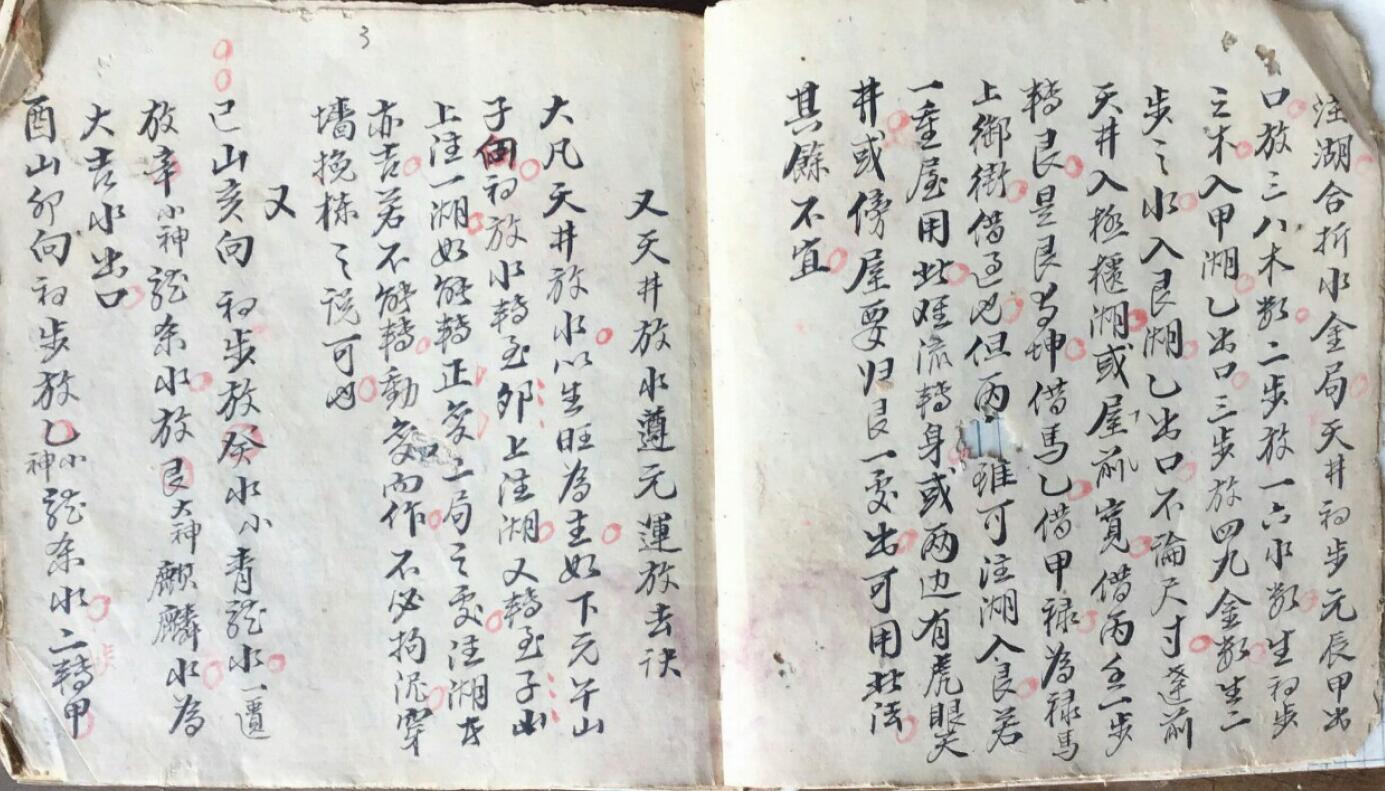 注湖合折水金局天井初步元辰甲出
口放三八木数二步放一六水数生初步
之木入甲湖乙出口三步放四九金数生二
步之水入艮湖乙出口不論尺寸逢前
天井入極櫃湖或屋前寬借丙壬一步
轉艮是艮与坤借馬乙借甲禄為禄馬
上御街借过也但丙 雖可注湖入艮若
一重屋用此难流轉身或两边有虎眼天
井或傍屋要归艮一处出可用此法
其餘不宜
3
又天井放水遵元運放去訣
大凡天井放水以生旺為主如下元午山
子向初放水轉至卯上注湖又轉至子山
上注一湖如能轉正癸二局之处注湖才
亦吉若不能轉動癸而作不必拘泥穿
墻挽栋之説可也
又
己山亥向初步放癸水小青龍水一還
放辛小神龍奈水放艮大神麒麟水為
大吉水出口
酉山卯向初步放乙小神龍奈水二轉甲